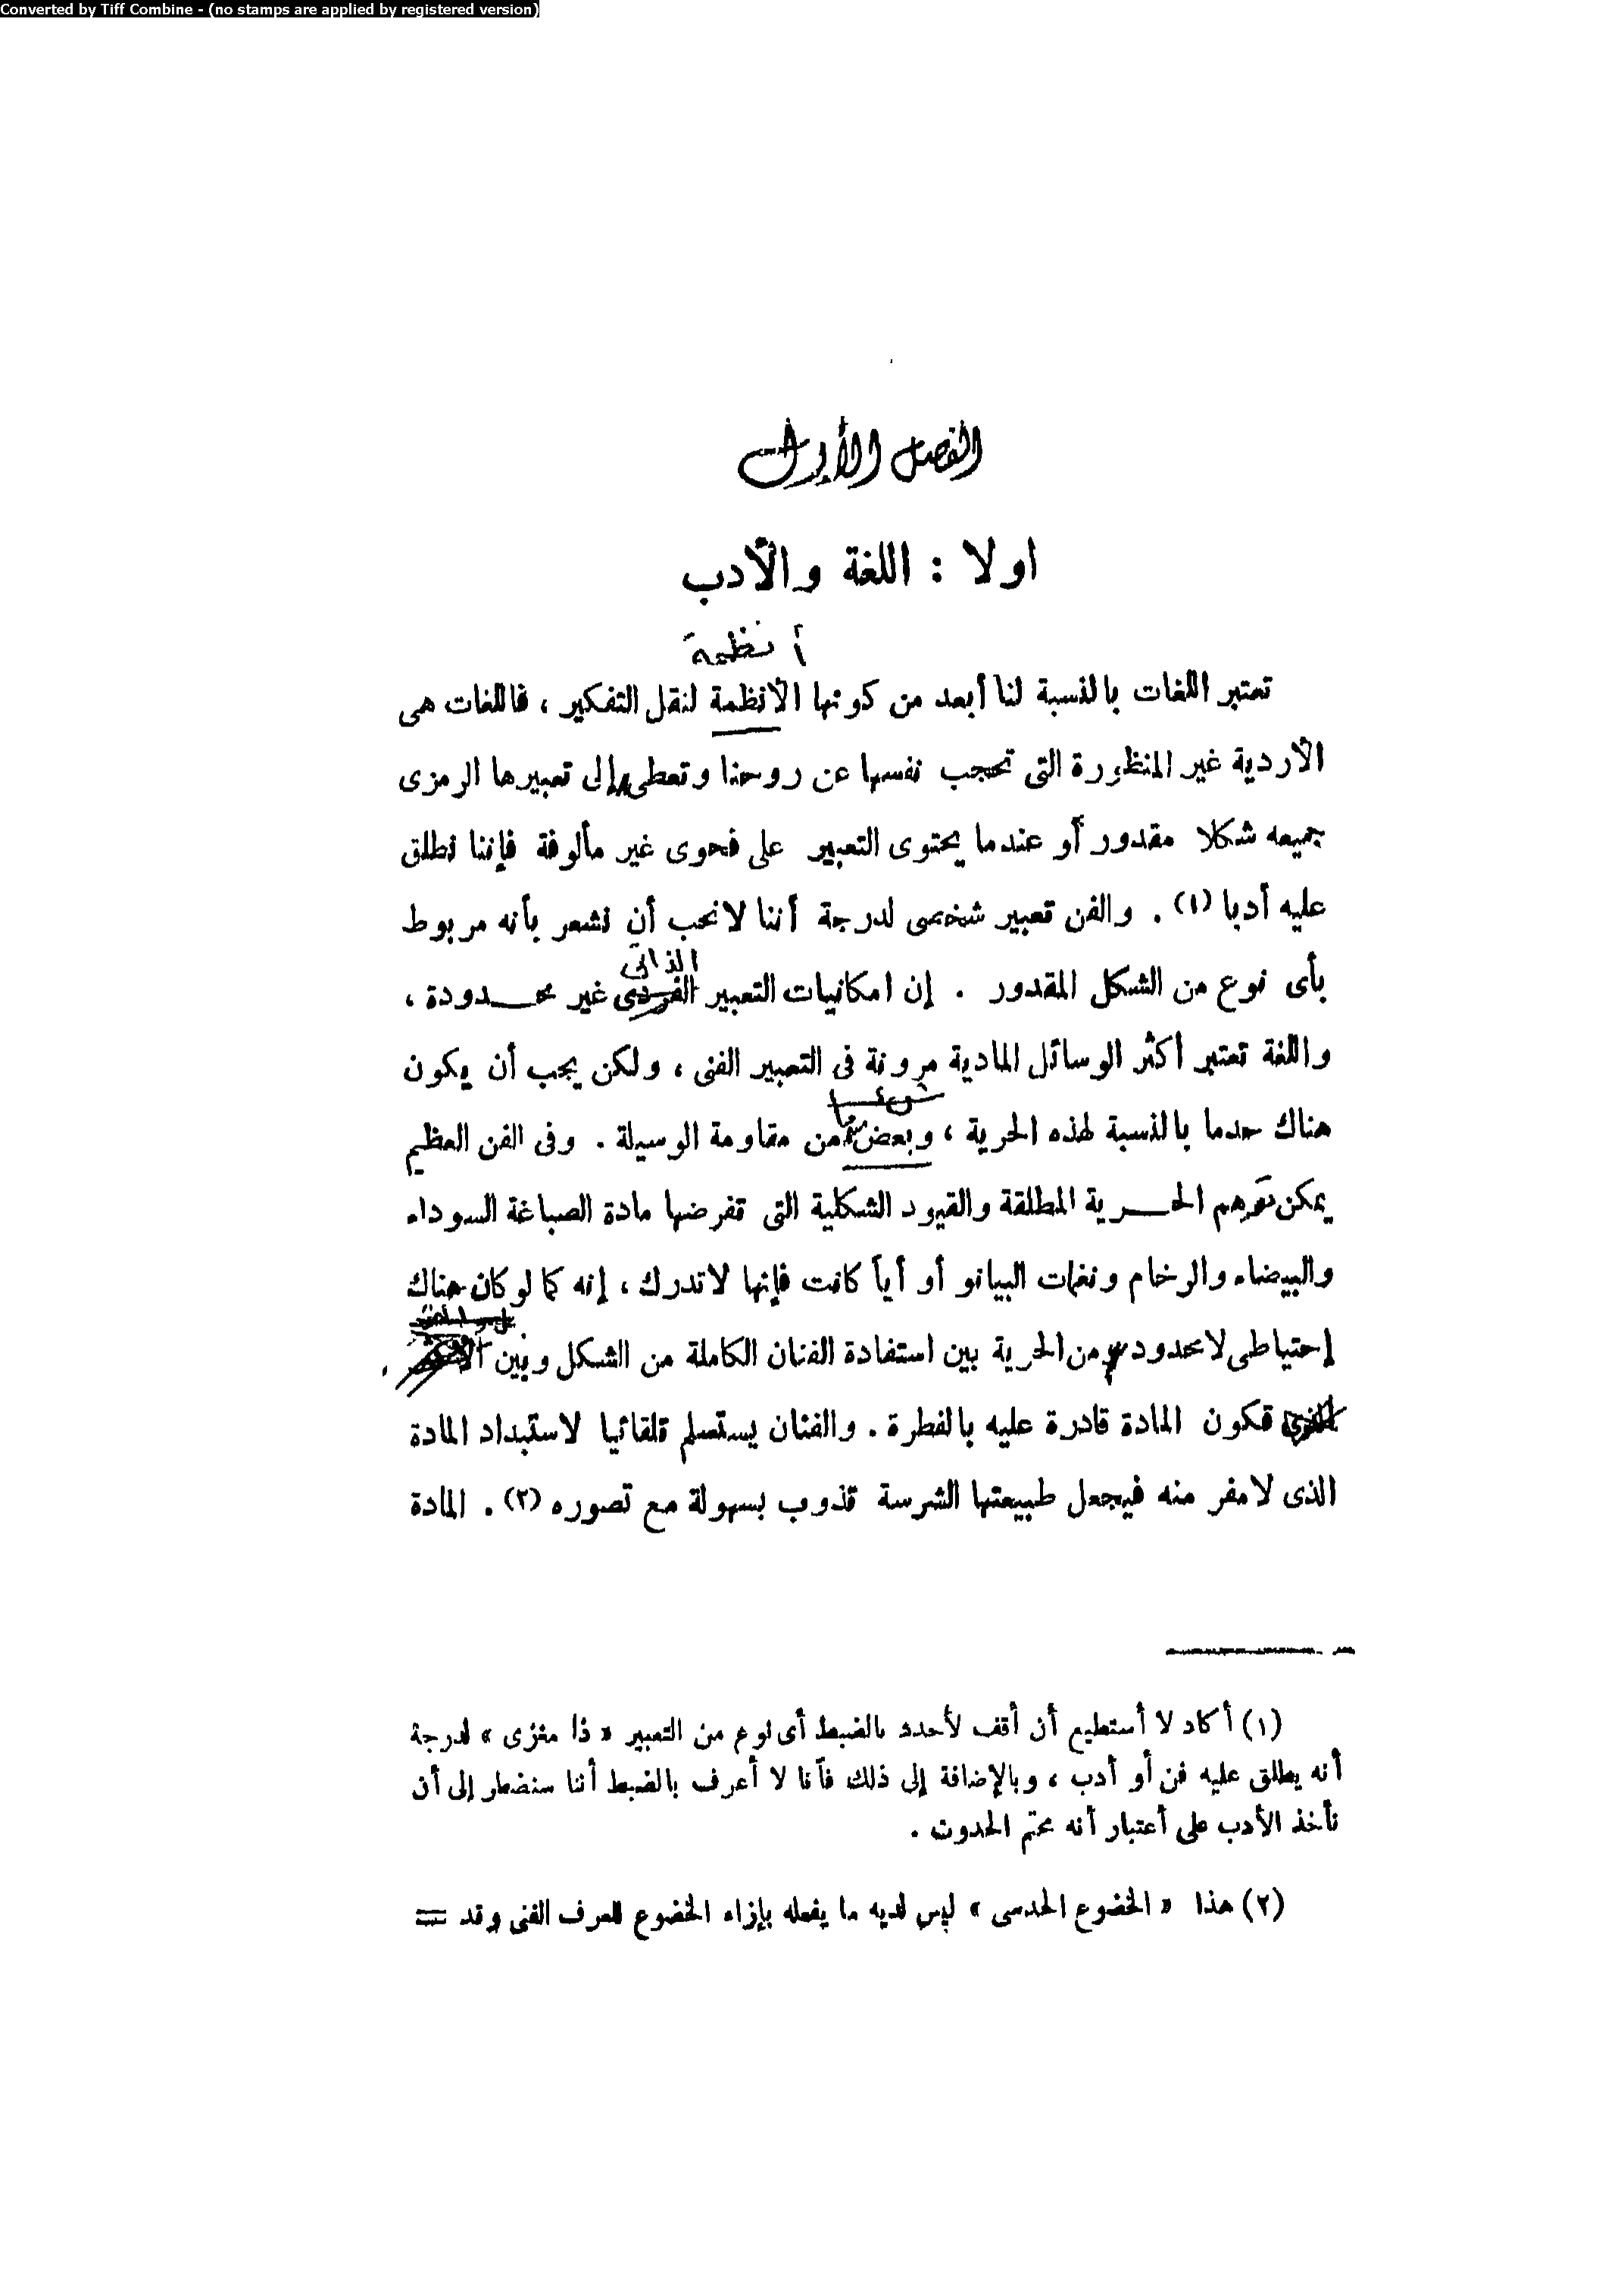 Converted by Tiff Combine - (no stamps are applied by registered version)
الفصل الأول
اولا : اللغة والأدب
أنظمة
تعتبر اللغات بالنسبة لنا أبعد من كونها الأنظمة لنقل التفكير ، فاللغات هى
الأردية غير المنظورة التى تحجب نفسها عن روحنا وتعطى إلى تعبيرها الرمزى
جميعه شكلا مقدور أو عندما يحتوى التعبير على فحوى غير مألوفة فإننا نطلق
عليه أدبا (١) . والفن تعبير شخصى لدرجة أننا لانحب أن نشعر بأنه مربوط
الذاتى
بأى نوع من الشكل المقدور . إن امكانيات التعبير الفردى غير محدودة ،
واللغة تعتبر أكثر الوسائل المادية مرونة فى التعبير الفنى ، ولكن يجب أن يكون
هناك حدما بالنسبة لهذه الحرية ، وبعض من مقاومة الوسيلة . وفى الفن العظيم
يمكن توهم الحرية المطلقة والقيود الشكلية التى تفرضها مادة الصباغة السوداء
والبيضاء والرخام ونغمات البيانو أو أياً كانت فإنها لاتدرك ، إنه كما لو كان هناك
إحتياطى لامحدود من الحرية بين استفادة الفنان الكاملة من الشكل وبين
تكون المادة قادرة عليه بالفطرة . والفنان يستسلم تلقائيا لاستبداد المادة
الذى لامفر منه فيجعل طبيعتها الشرسة تذوب بسهولة مع تصوره (٢) . المادة
(١) أكاد لا أستطيع أن أقف لأحدد بالضبط أى نوع من التعبير « ذا مغزى » لدرجة
أنه يطلق عليه فن أو أدب ، وبالإضافة إلى ذلك فأنا لا أعرف بالضبط أننا سنضطر إلى أن
نأخذ الأدب على أعتبار أنه محتم الحدوث .
(٢) هذا « الخضوع الحدسى » ليس لديه ما يفعله بإزاء الخضوع للعرف الفنى وقد =